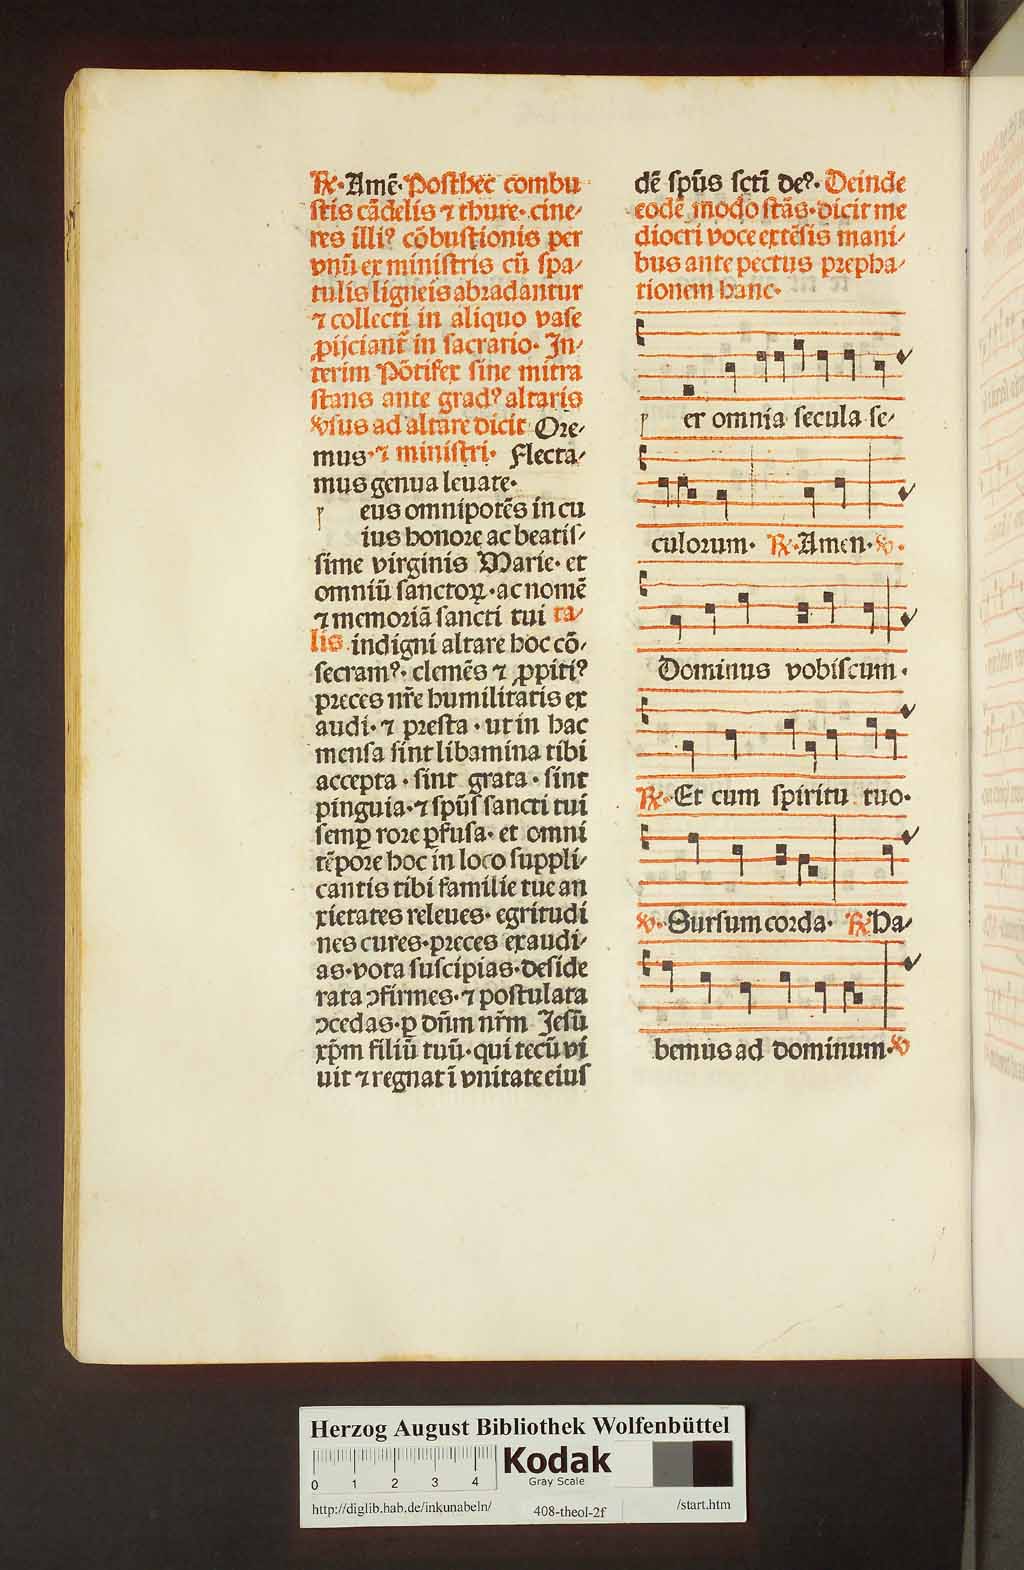 ℟· Amē· Posthec combu
stis cādelis ⁊ thure· cine/
res illiꝰ cōbustionis per
vnū ex ministris cū spa/
tulis ligneis abradantur
⁊ collecti in aliquo vase
ꝓijciant᷑ in sacrario· In/
terim Pōtifex sine mitra
stans ante gradꝰ altaris
ꝟsus ad altare dicit Ore/
mus· ⁊ ministri· Flecta/
mus genua leuate·
eus omnipotēs in cu
ius honore ac beatis/
sime virginis Marie· et
omniū sanctoꝝ· ac nomē
⁊ memoriā sancti tui ta/
lis indigni altare hoc cō/
secramꝰ· clemēs ⁊ ꝓpitiꝰ
preces nr̄e humilitatis ex
audi· ⁊ presta· ut in hac
mensa sint libamina tibi
accepta· sint grata· sint
pinguia· ⁊ spūs sancti tui
semꝑ rore ꝑfusa· et omni
tēpore hoc in loco suppli/
cantis tibi familie tue an
xietates releues· egritudi
nes cures· preces exaudi/
as· vota suscipias· deside
rata ꝯfirmes· ⁊ postulata
ꝯcedas· ꝑ dn̄m nr̄m Jesū
xp̄m filiū tuū· qui tecū vi
uit ⁊ regnat ī vnitate eius
dē spūs sctī deꝰ· Deinde
eodē modo stās· dicit me
diocri voce extēsis mani/
bus ante pectus prepha/
tionem hanc·
p er omnia secula se/
culorum· ℟· Amen· ℣·
Dominus vobiscum·
℟· Et cum spiritu tuo·
℣· Sursum corda· ℟ Ha/
bemus ad dominum· ℣
Herzog August Bibliothek Wolfenbüttel
0 1 2 3 4
Kodak
Gray Scale
http://diglib.hab.de/inkunabeln/ 408-theol-2f /start.htm